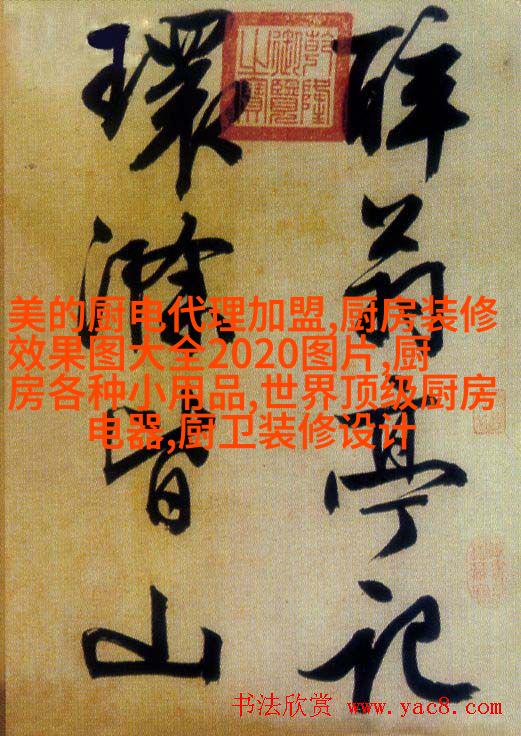 醉翁亭記
環滁皆山
乾隆御覽之寶
美的厨电代理加盟,厨房装修
效果图大全2020图片,厨
房各种小用品,世界顶级厨房
电器,厨卫装修设计
书法欣赏 www.yac8.com